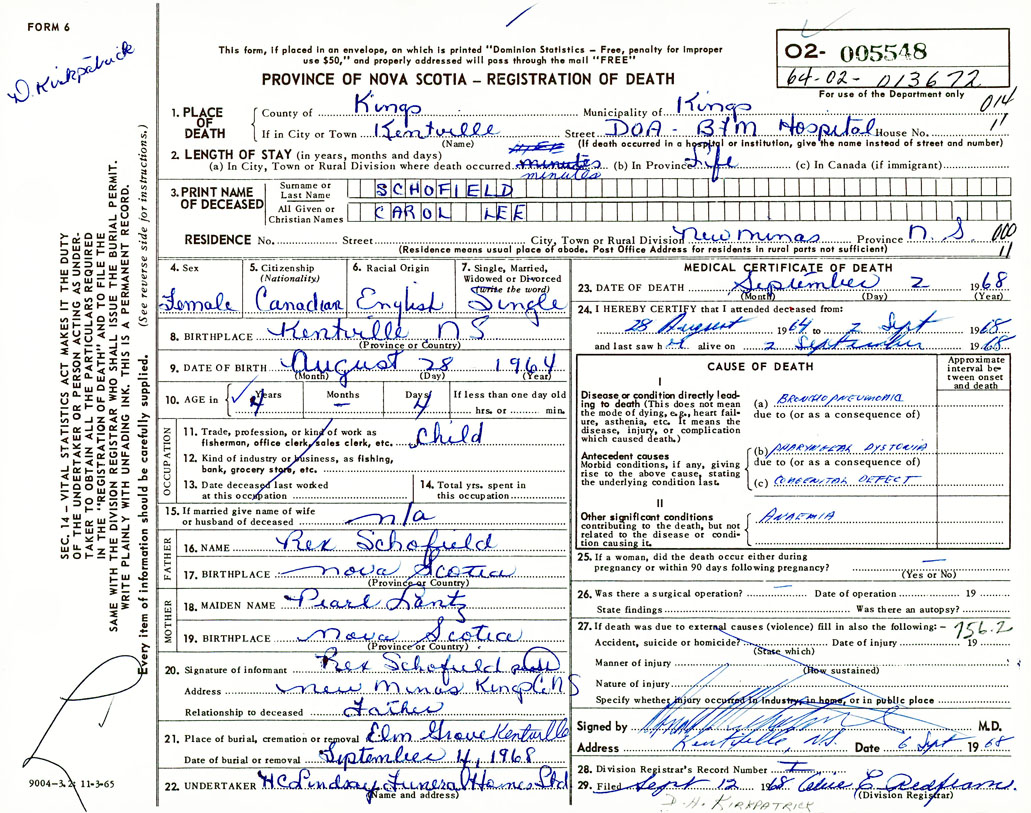 FORM 6
D. Kirkpatrick
This form, if placed in an envelope, on which is printed "Dominion Statistics – Free, penalty for improper
use $50," and properly addressed will pass through the mail "FREE"
PROVINCE OF NOVA SCOTIA – REGISTRATION OF DEATH
O2- 005548
64-02-013672
For use of the Department only
014
11
1. PLACE OF DEATH
County of Kings Municipality of Kings
If in City or Town Kentville Street DOA - BFM Hospital House No.
(Name) (If death occurred in a hospital or institution, give the name instead of street and number)
2. LENGTH OF STAY (in years, months and days)
(a) In City, Town or Rural Division where death occurred minutes (b) In Province Life (c) In Canada (if immigrant)
minutes
3. PRINT NAME OF DECEASED
Surname or Last Name SCHOFIELD
All Given or Christian Names CAROL LEE
RESIDENCE No. Street City, Town or Rural Division New Minas Province N. S
000
11
(Residence means usual place of abode. Post Office Address for residents in rural parts not sufficient)
SEC. 14 – VITAL STATISTICS ACT MAKES IT THE DUTY
OF THE UNDERTAKER OR PERSON ACTING AS UNDER-
TAKER TO OBTAIN ALL THE PARTICULARS REQUIRED
IN THE "REGISTRATION OF DEATH" AND TO FILE THE
SAME WITH THE DIVISION REGISTRAR WHO SHALL ISSUE THE BURIAL PERMIT.
WRITE PLAINLY WITH UNFADING INK. THIS IS A PERMANENT RECORD.
Every item of information should be carefully supplied. (See reverse side for instructions.)
4. Sex
Female
5. Citizenship
(Nationality)
Canadian
6. Racial Origin
English
7. Single, Married,
Widowed or Divorced
(write the word)
Single
8. BIRTHPLACE Kentville N S
(Province or Country)
9. DATE OF BIRTH August 28 1964
(Month) (Day) (Year)
10. AGE in Years 4 Months – Days 4 If less than one day old
hrs. or min.
OCCUPATION
11. Trade, profession, or kind of work as
fisherman, office clerk, sales clerk, etc. Child
12. Kind of industry or business, as fishing,
bank, grocery store, etc.
13. Date deceased last worked
at this occupation
14. Total yrs. spent in
this occupation
15. If married give name of wife
or husband of deceased n/a
FATHER
16. NAME Rex Schofield
17. BIRTHPLACE Nova Scotia
(Province or Country)
MOTHER
18. MAIDEN NAME Pearl Lantz
19. BIRTHPLACE Nova Scotia
(Province or Country)
20. Signature of informant Rex Schofield
Address New Minas Kings Co NS
Relationship to deceased Father
21. Place of burial, cremation or removal Elm Grove Kentville
Date of burial or removal September 4, 1968
22. UNDERTAKER H C Lindsay Funeral Homes Ltd
(Name and address)
9004-3.2: 11-3-65
MEDICAL CERTIFICATE OF DEATH
23. DATE OF DEATH September 2 1968
(Month) (Day) (Year)
24. I HEREBY CERTIFY that I attended deceased from:
28 August 1964 to 2 Sept 1968
and last saw her alive on 2 September 1968
CAUSE OF DEATH
Approximate interval between onset and death
I
Disease or condition directly lead-
ing to death (This does not mean
the mode of dying, e.g., heart fail-
ure, asthenia, etc. It means the
disease, injury, or complication
which caused death.)
(a) BRONCHOPNEUMONIA
due to (or as a consequence of)
Antecedent causes
Morbid conditions, if any, giving
rise to the above cause, stating
the underlying condition last.
(b) PHARYNGEAL DYSTONIA
due to (or as a consequence of)
(c) CONGENITAL DEFECT
II
Other significant conditions
contributing to the death, but not
related to the disease or condi-
tion causing it.
ANAEMIA
25. If a woman, did the death occur either during
pregnancy or within 90 days following pregnancy? –
(Yes or No)
26. Was there a surgical operation? – Date of operation 19
State findings Was there an autopsy?
27. If death was due to external causes (violence) fill in also the following: – 756.2
Accident, suicide or homicide? Date of injury 19
(State which)
Manner of injury
(How sustained)
Nature of injury
Specify whether injury occurred in industry, in home, or in public place
Signed by M.D.
Address Kentville, N.S. Date 6 Sept 1968
28. Division Registrar's Record Number
29. Filed Sept 12 1968
(Division Registrar)
D. H. KIRKPATRICK